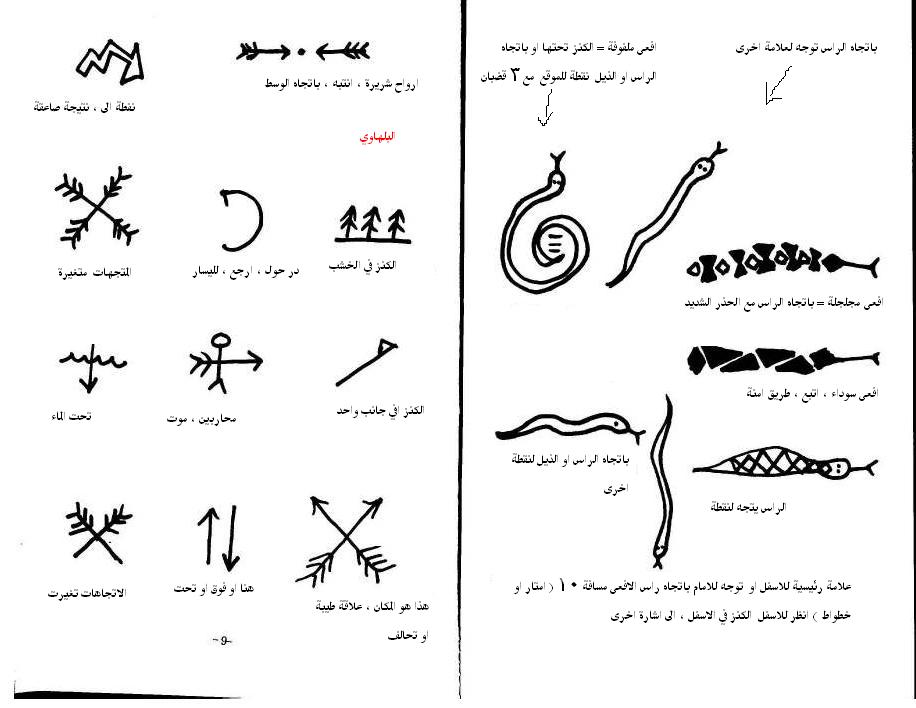 باتجاه الراس توجه لعلامة اخرى
افعى ملفوفة = الكنز تحتها او باتجاه
الراس او الذيل نقطة للموقع مع ٣ قضبان
افعى مجلجلة = باتجاه الراس مع الحذر الشديد
افعى سوداء ، اتبع ، طريق امنة
باتجاه الراس او الذيل لنقطة
اخرى
الراس يتجه لنقطة
علامة رئيسية للاسفل او توجه للامام باتجاه راس الافعى مسافة ١٠ ( امتار او
خطوات ) انظر للاسفل الكنز في الاسفل ، الى اشارة اخرى
ارواح شريرة ، انتبه ، باتجاه الوسط
نقطة الى ، نتيجة صاعقة
البلهاوي
الكنز في الخشب
در حول ، ارجع ، لليسار
المتجهات متغيرة
الكنز افي جانب واحد
محاربين ، موت
تحت الماء
هذا هو المكان ، علاقة طيبة
او تحالف
هنا او فوق او تحت
الاتجاهات تغيرت
-9-